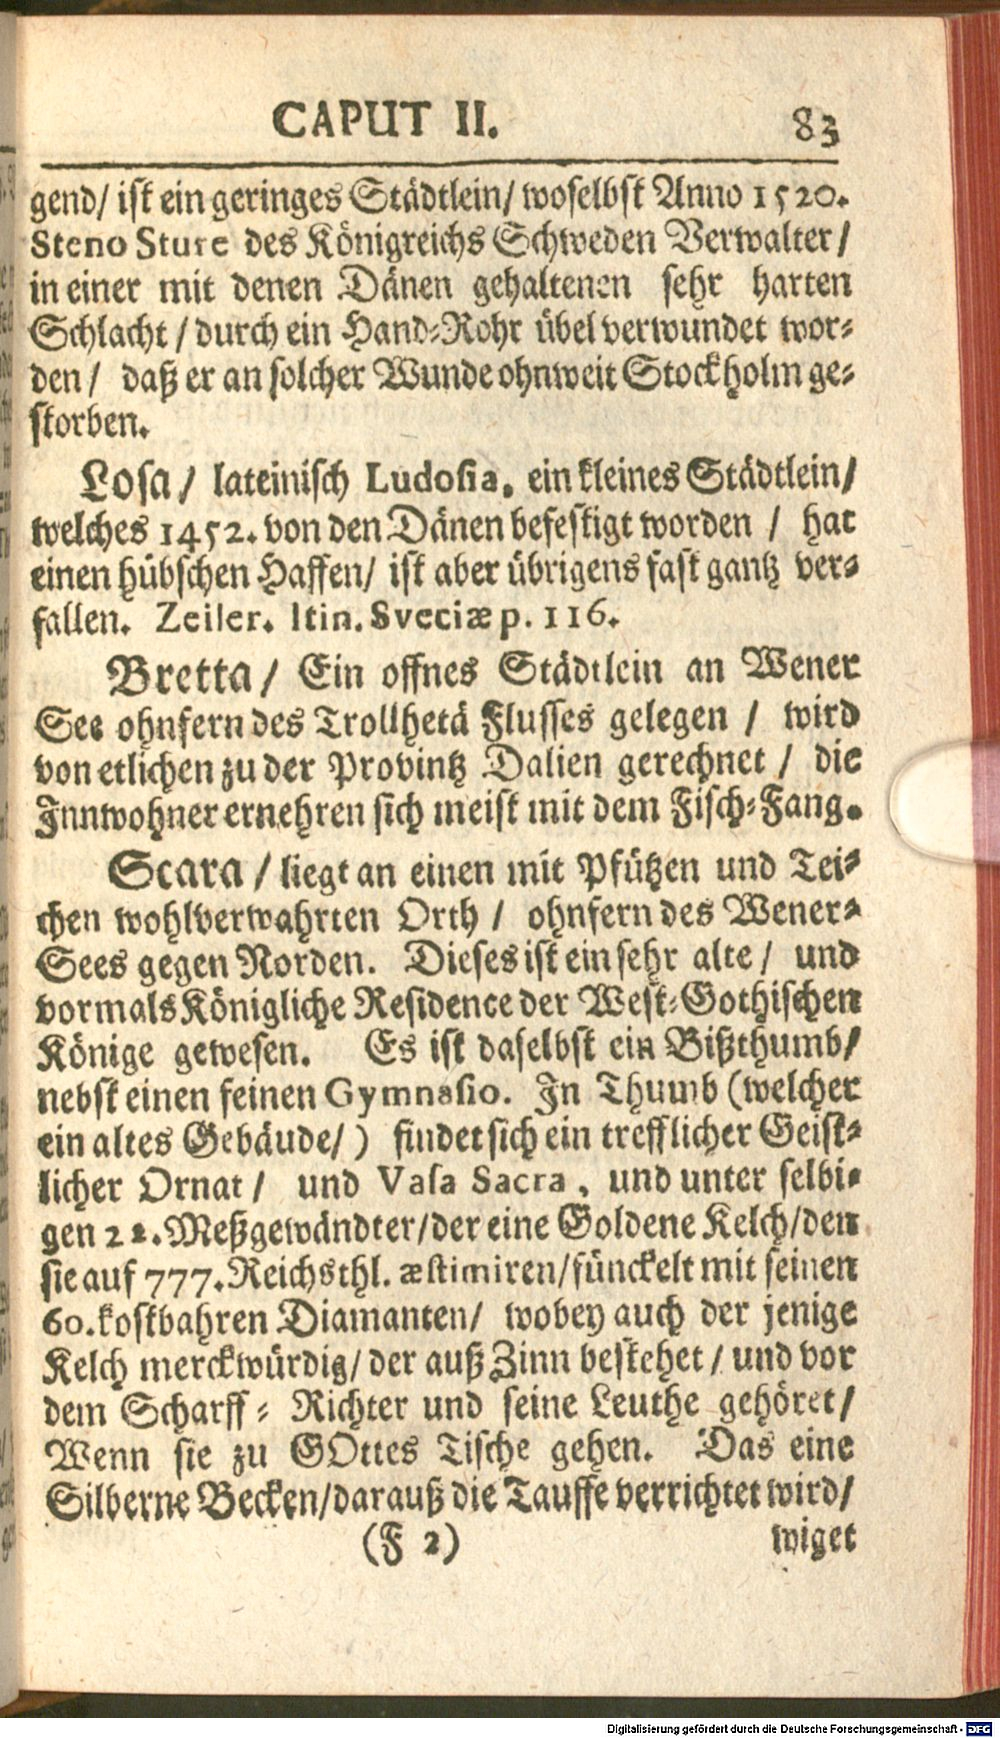 CAPUT II. 83
gend/ ist ein geringes Städtlein/ woselbst Anno 1520.
Steno Sture des Königreichs Schweden Verwalter/
in einer mit denen Dänen gehaltenen sehr harten
Schlacht / durch ein Hand-Rohr übel verwundet wor-
den / daß er an solcher Wunde ohnweit Stockholm ge-
storben.
Losa / lateinisch Ludosia, ein kleines Städtlein/
welches 1452. von den Dänen befestigt worden / hat
einen hübschen Haffen/ ist aber übrigens fast gantz ver-
fallen. Zeiler. Itin. Sveciæ p. 116.
Bretta / Ein offnes Städtlein an Wener
See ohnfern des Trollhetä Flusses gelegen / wird
von etlichen zu der Provintz Dalien gerechnet / die
Innwohner ernehren sich meist mit dem Fisch-Fang.
Scara / liegt an einen mit Pfützen und Tei-
chen wohlverwahrten Orth / ohnfern des Wener-
Sees gegen Norden. Dieses ist ein sehr alte / und
vormals Königliche Residence der West-Gothischen
Könige gewesen. Es ist daselbst ein Bißthumb/
nebst einen feinen Gymnasio. In Thumb (welcher
ein altes Gebäude/) findet sich ein trefflicher Geist-
licher Ornat / und Vasa Sacra, und unter selbi-
gen 22. Meßgewändter/der eine Goldene Kelch/den
sie auf 777. Reichsthl. æstimiren/fünckelt mit seinen
60. kostbahren Diamanten/ wobey auch der jenige
Kelch merckwürdig/ der auß Zinn bestehet / und vor
dem Scharff-Richter und seine Leuthe gehöret/
Wenn sie zu GOttes Tische gehen. Das eine
Silberne Becken/darauß die Tauffe verrichtet wird/
(F 2) wiget
Digitalisierung gefördert durch die Deutsche Forschungsgemeinschaft - DFG